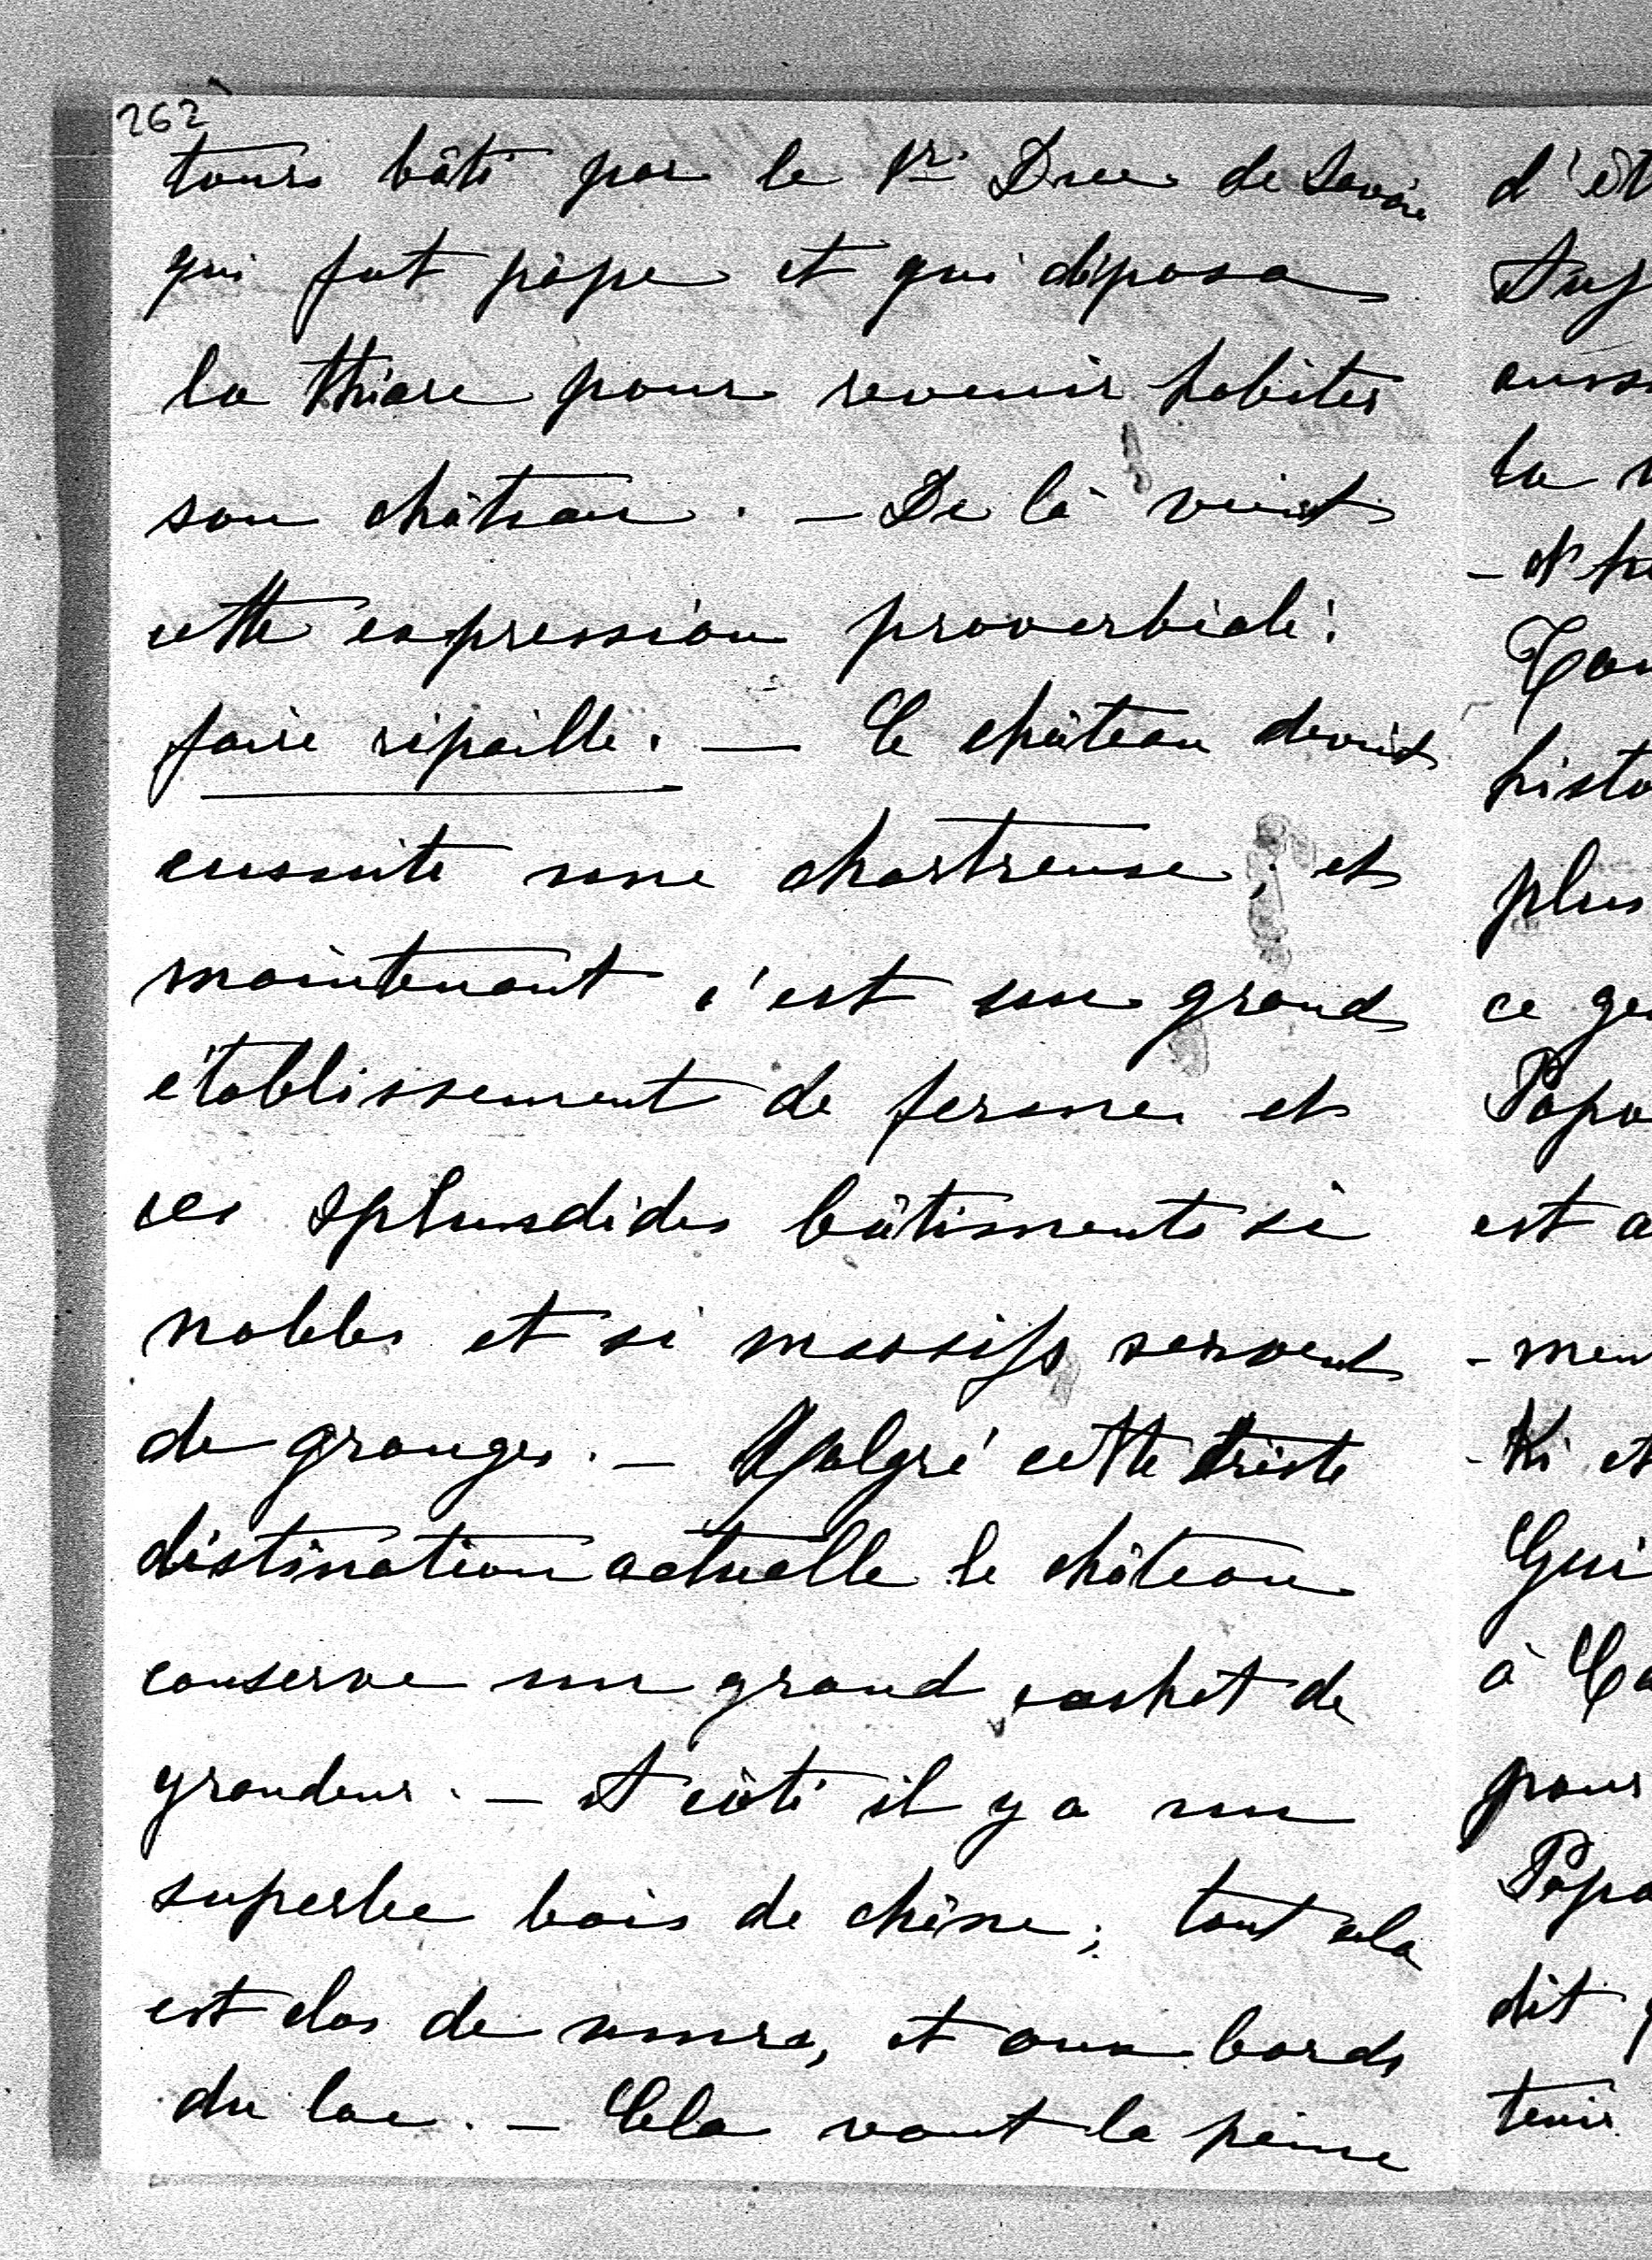 262
tours bâti par le 1er Duc de Savoie
qui fut pape et qui déposa
la thiare pour revenir habiter
son château. - De là vient
cette expression proverbiale:
faire ripaille. - Le château devint
ensuite une chartreuse; et
maintenant c'est un grand
établissement de ferme et
ses splendides bâtiments si
nobles et si massifs servent
de granges. - Malgré cette triste
destination actuelle le château
conserve un grand cachet de
grandeur. - A côté il y a un
superbe bois de chêne; tout cela
est clos de murs, et aux bords
du lac. - Cela vaut la peine
d'êt
aussi
la
histo
plus
ce ge
Papa
est a
-men
-ki et
à Ca
pour
Papa
dit
tenir